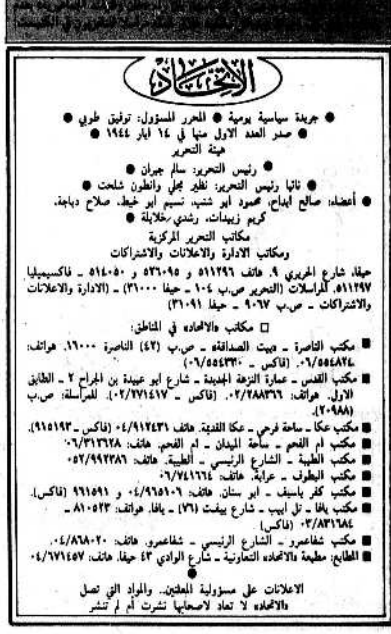 الاتحاد
● جريدة سياسية يومية ● المحرر المسؤول: توفيق طوبي ●
● صدر العدد الاول منها في ١٤ ايار ١٩٤٤ ●
هيئة التحرير
● رئيس التحرير: سالم جبران ●
● نائبا رئيس التحرير: نظير مجلي وانطون شلحت ●
● أعضاء: صالح ابداح، محمود ابو شنب، نسيم ابو خيط، صلاح دباجة،
كريم زبيدات، رشدي خلايلة ●
مكاتب التحرير المركزية
ومكاتب الادارة والاعلانات والاشتراكات
حيفا، شارع الحريري ٩. هاتف ٥١١٢٩٦ و ٥٣٦٠٩٥ ـ ٥١٤٠٥٠ ـ فاكسيميليا
٥١١٢٩٧. المراسلات (التحرير ص.ب ١٠٤ ـ حيفا ٣١٠٠٠) ـ (الادارة والاعلانات
والاشتراكات ـ ص.ب ٩٠٦٧ ـ حيفا ٣١٠٩١)
□ مكاتب «الاتحاد» في المناطق:
■ مكتب الناصرة ـ «بيت الصداقة» ـ ص.ب (٤٢) الناصرة ١٦٠٠٠. هواتف:
٠٦/٥٥٤٨٢٤. (فاكس ـ ٠٦/٥٥٤٣٣٠)
■ مكتب القدس ـ عمارة النزهة الجديدة ـ شارع ابو عبيدة بن الجراح ٢ ـ الطابق
الاول. هواتف: ٠٢/٢٨٨٣٦٦. (فاكس ـ ٠٢/٢٧١٤١٧). للمراسلة: ص.ب
(٢٠٩٨٨)
■ مكتب عكا ـ ساحة فرحي ـ عكا القديمة. هاتف ٠٤/٩١٢٤٣١ (فاكس ـ ٩١٥١٩٣)
■ مكتب ام الفحم ـ ساحة الميدان ـ ام الفحم. هاتف: ٠٦/٣١٣٦٢٨
■ مكتب الطيبة ـ الشارع الرئيسي ـ الطيبة. هاتف: ٠٥٢/٩٩٢٣٨٦
■ مكتب البطوف ـ عرابة. هاتف: ٠٦/٧٤١٦٦٤
■ مكتب كفر ياسيف ـ ابو سنان. هاتف: ٠٤/٩٦٥١٠٦ و ٩٦١٥٩١ (فاكس).
■ مكتب يافا ـ تل ابيب ـ شارع ييفت (٧٦) ـ يافا. هواتف: ٨١٠٥٢٣ ـ
٠٣/٨٣١٦٨٤ (فاكس)
■ مكتب شفاعمرو ـ الشارع الرئيسي ـ شفاعمرو. هاتف: ٠٤/٨٦٨٠٢٠.
■ المطابع: مطبعة «الاتحاد» التعاونية ـ شارع الوادي ٤٣ حيفا. هاتف: ٠٤/٦٧١٤٥٧
●
الاعلانات على مسؤولية المعلنين.. والمواد التي تصل
«الاتحاد» لا تعاد لاصحابها نشرت أم لم تنشر